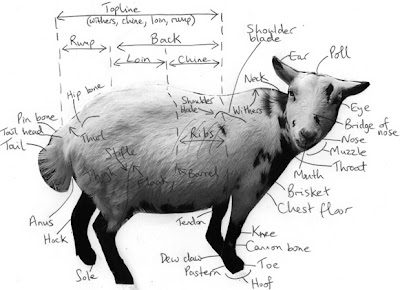 Topline
(withers, chine, loin, rump)
Rump
Back
Shoulder
blade
Loin
Chine
Ear
Poll
Hip bone
Shoulder
blade
Withers
Neck
Eye
Pin bone
Bridge of
nose
Tail head
Tail
Thurl
Ribs
Nose
Muzzle
Stifle
Throat
Mouth
Thigh
Flank
Barrel
Brisket
Chest floor
Anus
Hock
Tendon
Knee
Cannon bone
Dew claw
Toe
Pastern
Hoof
Sole